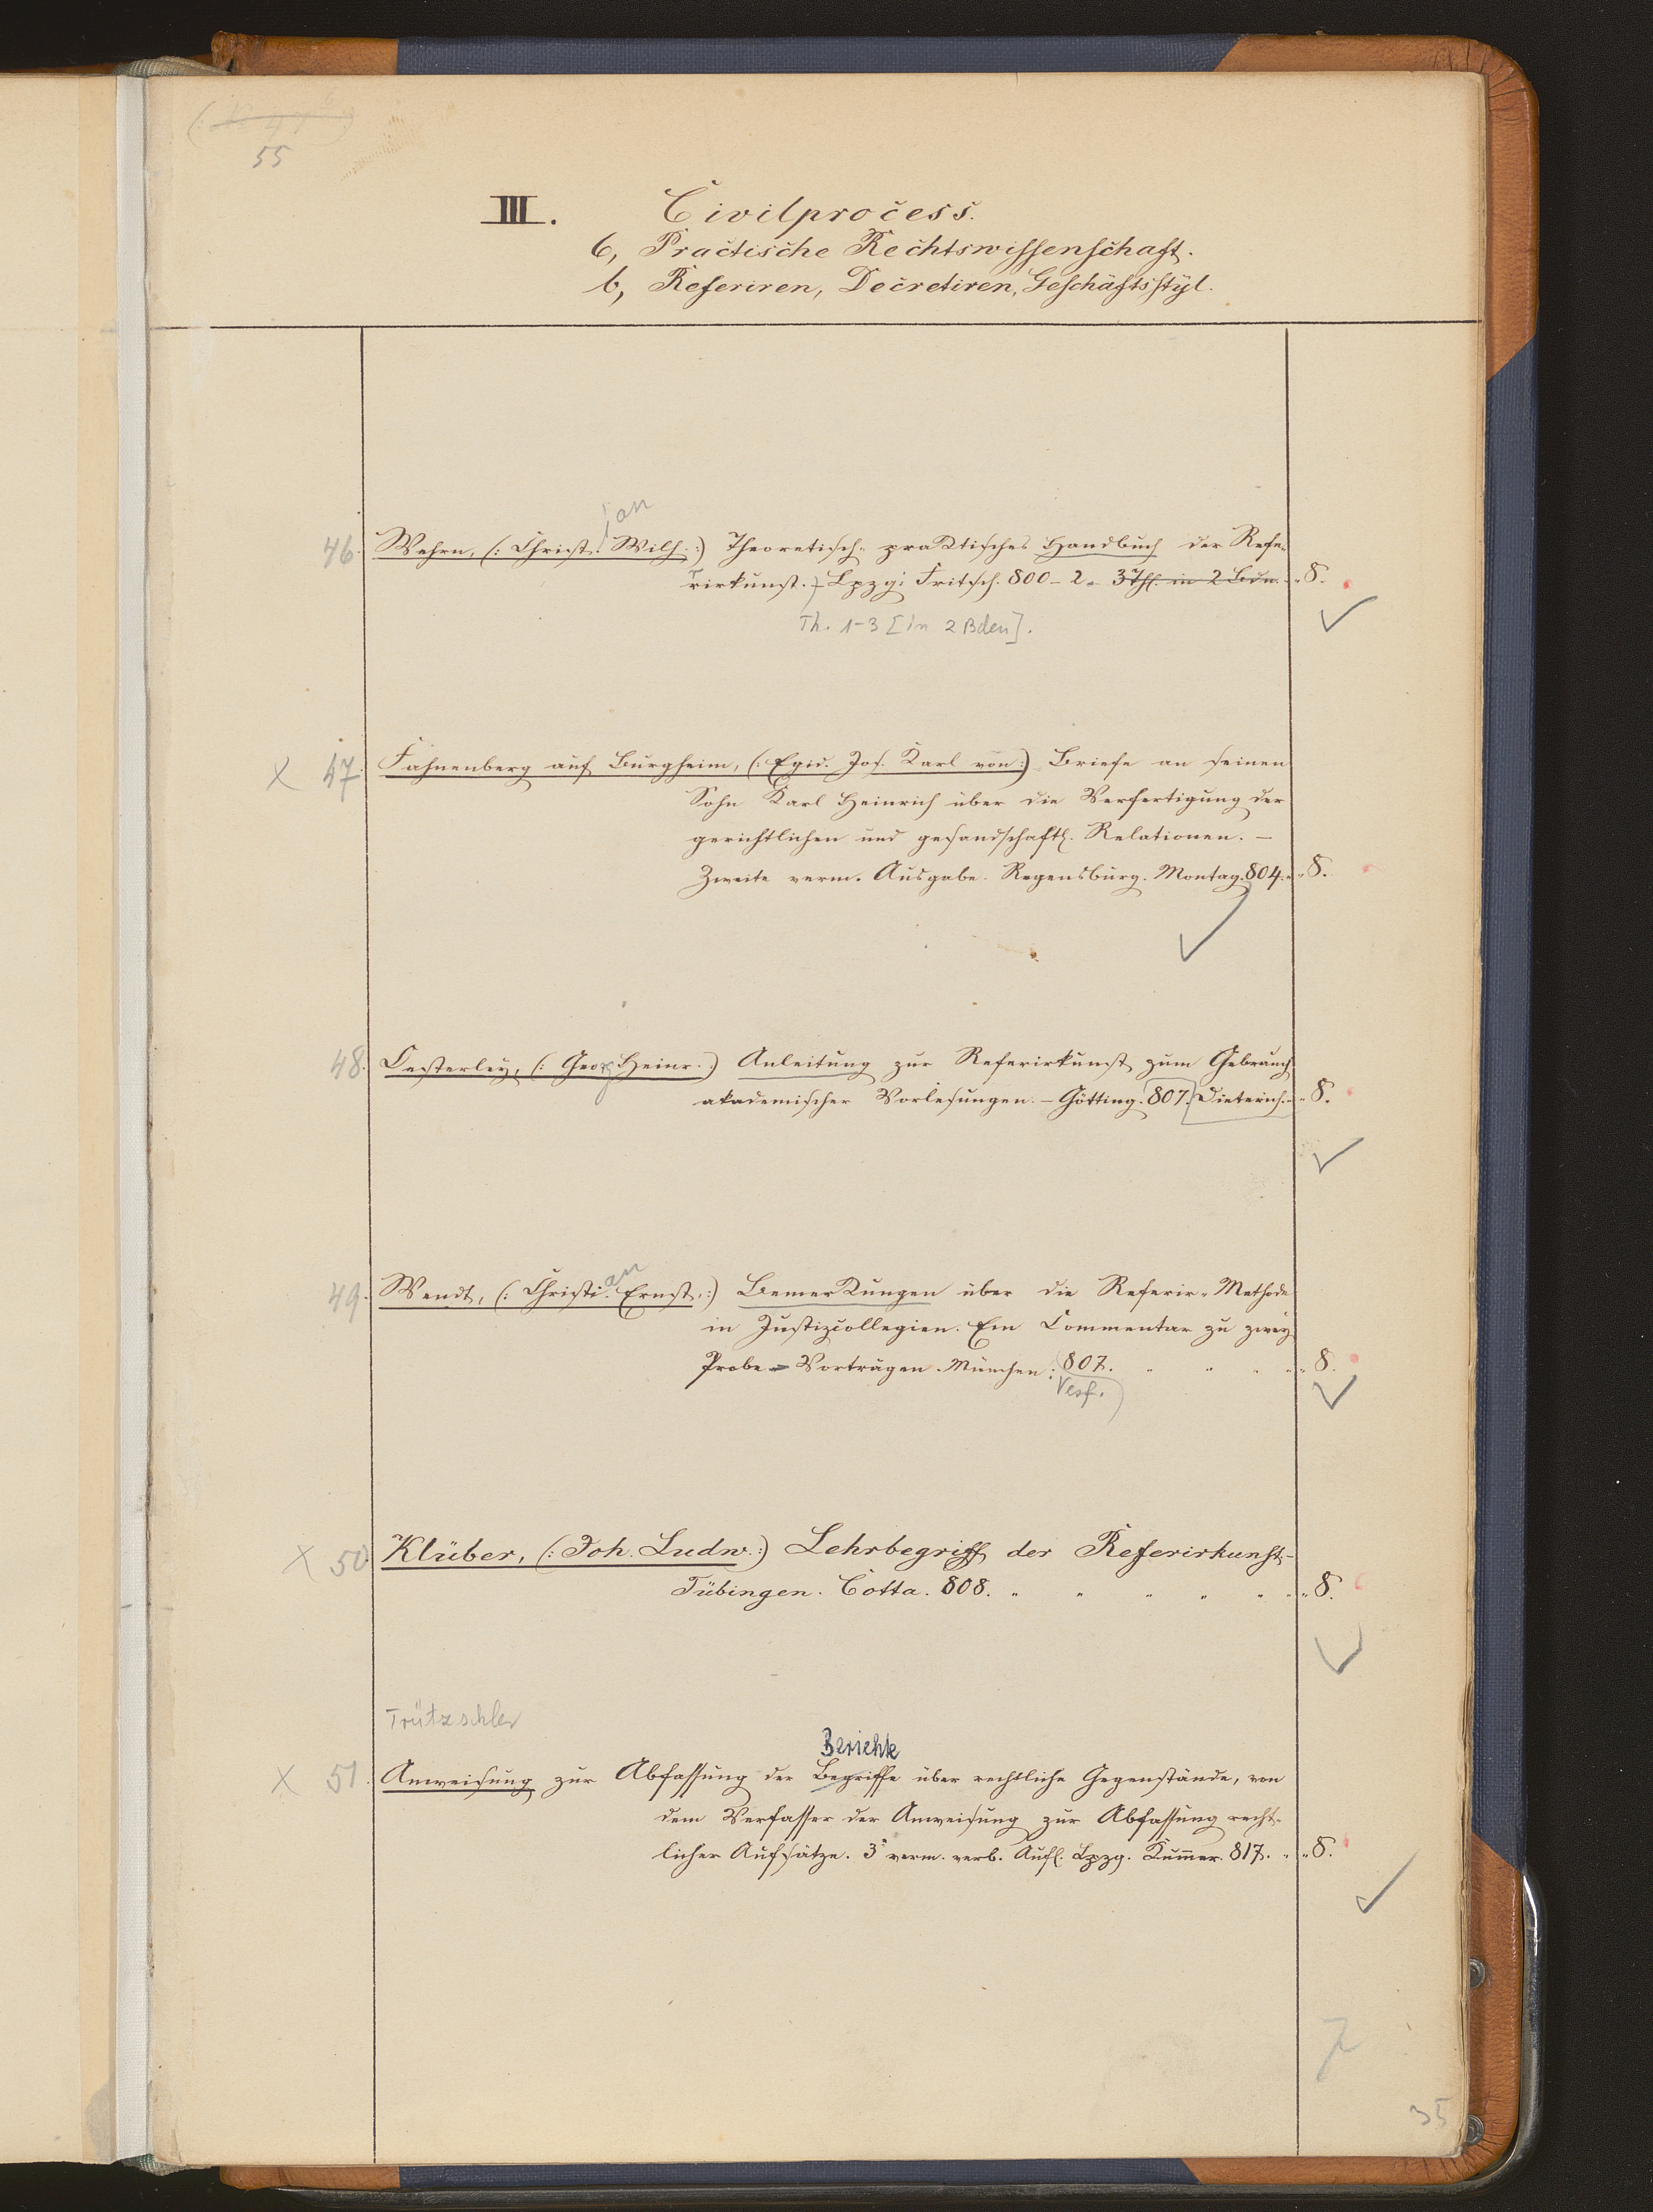 55
III. Civilprocess.
6, Practische Rechtswissenschaft.
b, Referiren, Decretiren, Geschäftsstyl.
ian
46. Wehrn, (: Christ. Wilh. :) Theoretisch-praktisches Handbuch der Refe-
rirkunst. Lpzg: Fritsch. 800-2. 3 Thl. in 2 Bdn. 8.
Th. 1-3 [in 2 Bden].
X 47. Fahnenberg auf Burgheim, (: Egid. Jos. Karl von :) Briefe an seinen
Sohn Karl Heinrich über die Verfertigung der
gerichtlichen und gesandschaftl. Relationen. —
Zweite verm. Ausgabe. Regensburg. Montag. 804. 8.
48. Oesterley, (: Georg Heinr. :) Anleitung zur Referirkunst zum Gebrauch
akademischer Vorlesungen. — Götting. 807. Dieterich. 8.
an
49. Wendt, (: Christi. Ernst. :) Bemerkungen über die Referir-Methode
in Justizcollegien. Ein Commentar zu zwey
Probe-Vorträgen. München: 807. 8.
Verf.
X 50. Klüber, (: Joh. Ludw. :) Lehrbegriff der Referirkunst. —
Tübingen. Cotta. 808. 8.
Trützschler
Berichte
X 51. Anweisung zur Abfassung der Begriffe über rechtliche Gegenstände, von
dem Verfasser der Anweisung zur Abfassung recht-
licher Aufsätze. 3e verm. verb. Aufl. Lpzg. Kummer. 817. 8.
35